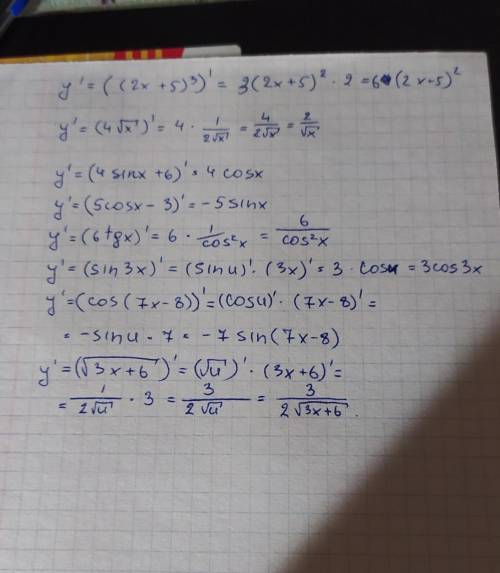 y' = ((2x+5)³)' = 3(2x+5)² · 2 = 6·(2x+5)²
y' = (4√x)' = 4 · 1/(2√x) = 4/(2√x) = 2/√x
y' = (4 sinx + 6)' = 4 cosx
y' = (5cosx − 3)' = −5 sinx
y' = (6tgx)' = 6 · 1/cos²x = 6/cos²x
y' = (sin3x)' = (sinu)' · (3x)' = 3 · cosu = 3cos3x
y' = (cos(7x−8))' = (cosu)' · (7x−8)' =
= −sinu · 7 = −7 sin(7x−8)
y' = (√(3x+6))' = (√u)' · (3x+6)' =
= 1/(2√u) · 3 = 3/(2√u) = 3/(2√(3x+6)).